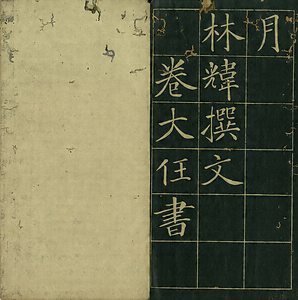 月
林輝撰文
卷大任書